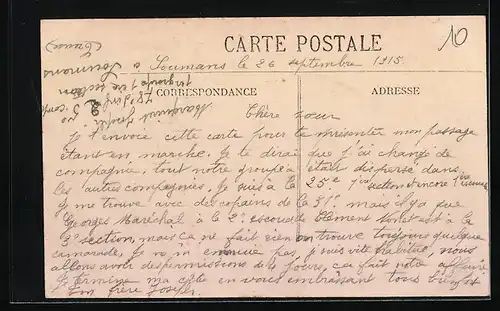 CARTE POSTALE
10
à Soumans le 26 septembre 1915
CORRESPONDANCE
ADRESSE
Chère sœur
Je t'envoie cette carte pour te présenter mon passage
étant en marche. Je te dirai que j'ai changé de
compagnie, tout notre groupe a était dispersé dans
les autres compagnies, je suis à la 25e 1ère section encore
Je me trouve avec des copains de la 31e mais il y a que
Georges Maréchal à la 2e escouade Clément est à la
3e section, mais ça ne fait rien on trouve toujours quelque
camarade, je ne m'ennuie pas, j'suis vite habitué, nous
allons avoir des permissions de jours, ça fait notre affaire
Je termine ma carte en vous embrassant tous bien fort
Ton frère Joseph